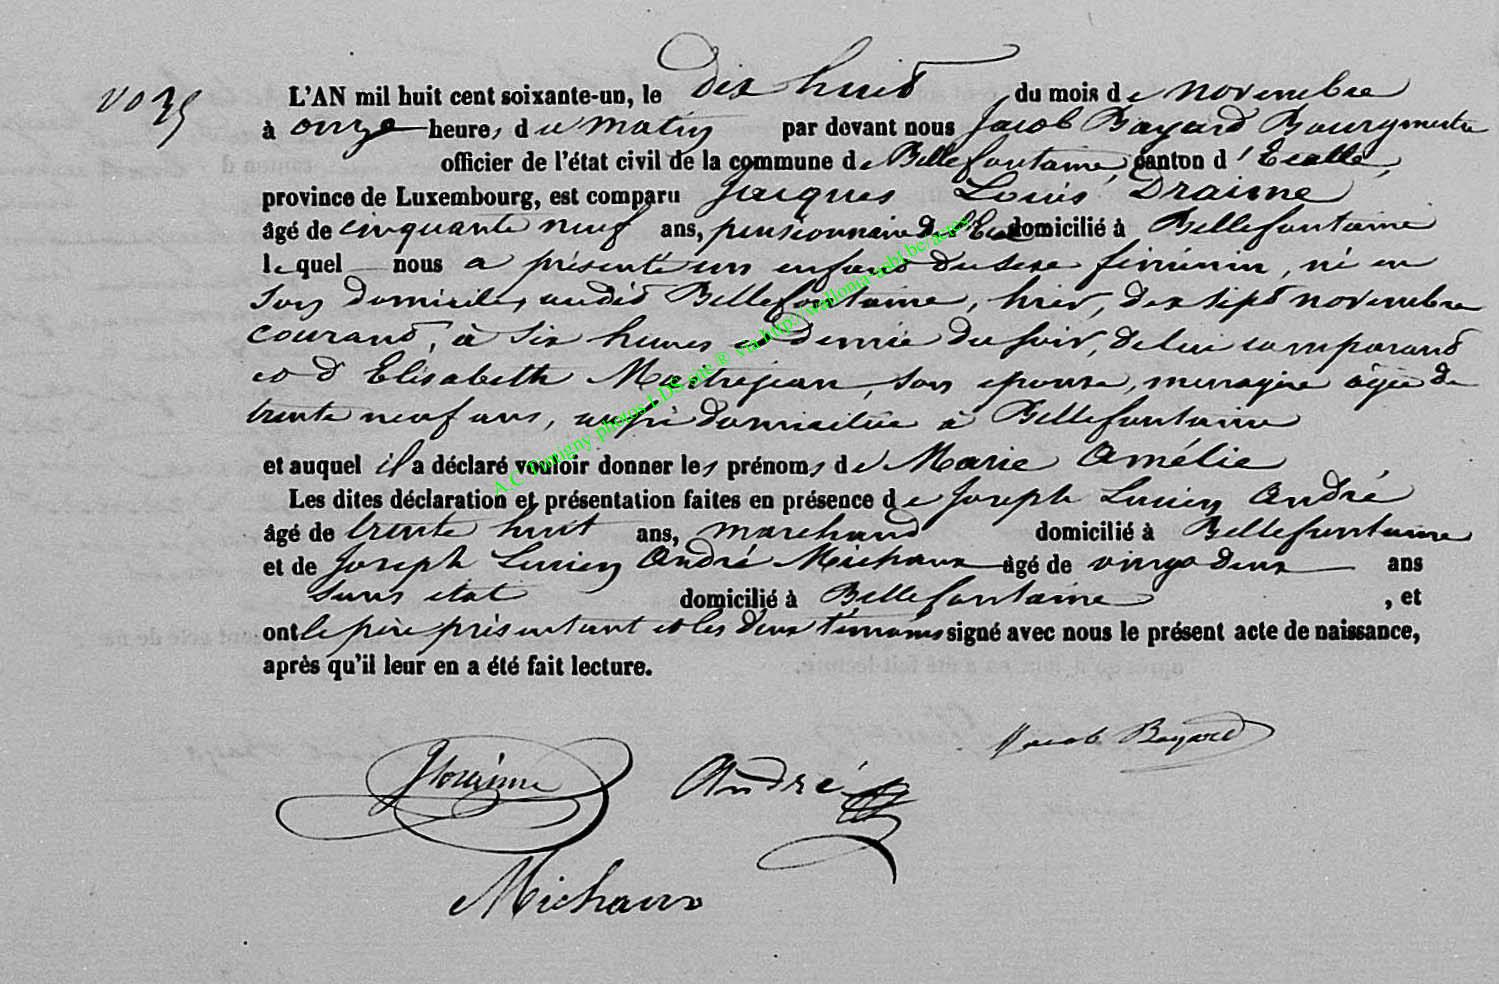 N° 35
L'AN mil huit cent soixante-un, le dix huit du mois de novembre
à onze heures du matin par devant nous Jacob Bayard Bourgmestre
officier de l'état civil de la commune de Bellefontaine, canton d'Etalle,
province de Luxembourg, est comparu Jacques Louis Draime
âgé de cinquante neuf ans, pensionnaire de l'Etat domicilié à Bellefontaine
lequel nous a présenté un enfant du sexe féminin, né en
son domicile, audit Bellefontaine, hier, dix sept novembre
courant, à six heures et demie du soir, de lui comparant
et d'Elisabeth Maitrejean, son épouse, ménagère âgée de
trente neuf ans, aussi domiciliée à Bellefontaine
et auquel il a déclaré vouloir donner les prénoms de Marie Amélie
Les dites déclaration et présentation faites en présence de Joseph Lucien André
âgé de trente huit ans, marchand domicilié à Bellefontaine
et de Joseph Lucien André Michaux âgé de vingt deux ans
sans état domicilié à Bellefontaine, et
ont le père présentant et les deux témoins signé avec nous le présent acte de naissance,
après qu'il leur en a été fait lecture.
Jacob Bayard
Draime André
Michaux
A.C Tintigny photos LDS one ® via http://wallonia-asbl.be/actes